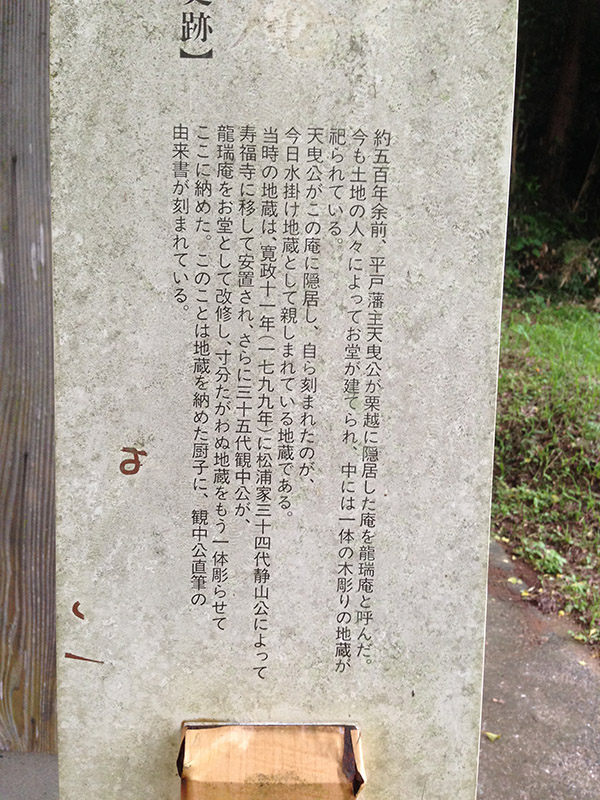 史跡】
約五百年余前、平戸藩主天叟公が栗越に隠居した庵を龍瑞庵と呼んだ。
今も土地の人々によってお堂が建てられ、中には一体の木彫りの地蔵が
祀られている。
天叟公がこの庵に隠居し、自ら刻まれたのが、
今日水掛け地蔵として親しまれている地蔵である。
当時の地蔵は、寛政十一年(一七九九年)に松浦家三十四代静山公によって
寿福寺に移して安置され、さらに三十五代観中公が、
龍瑞庵をお堂として改修し、寸分たがわぬ地蔵をもう一体彫らせて
ここに納めた。このことは地蔵を納めた厨子に、観中公直筆の
由来書が刻まれている。